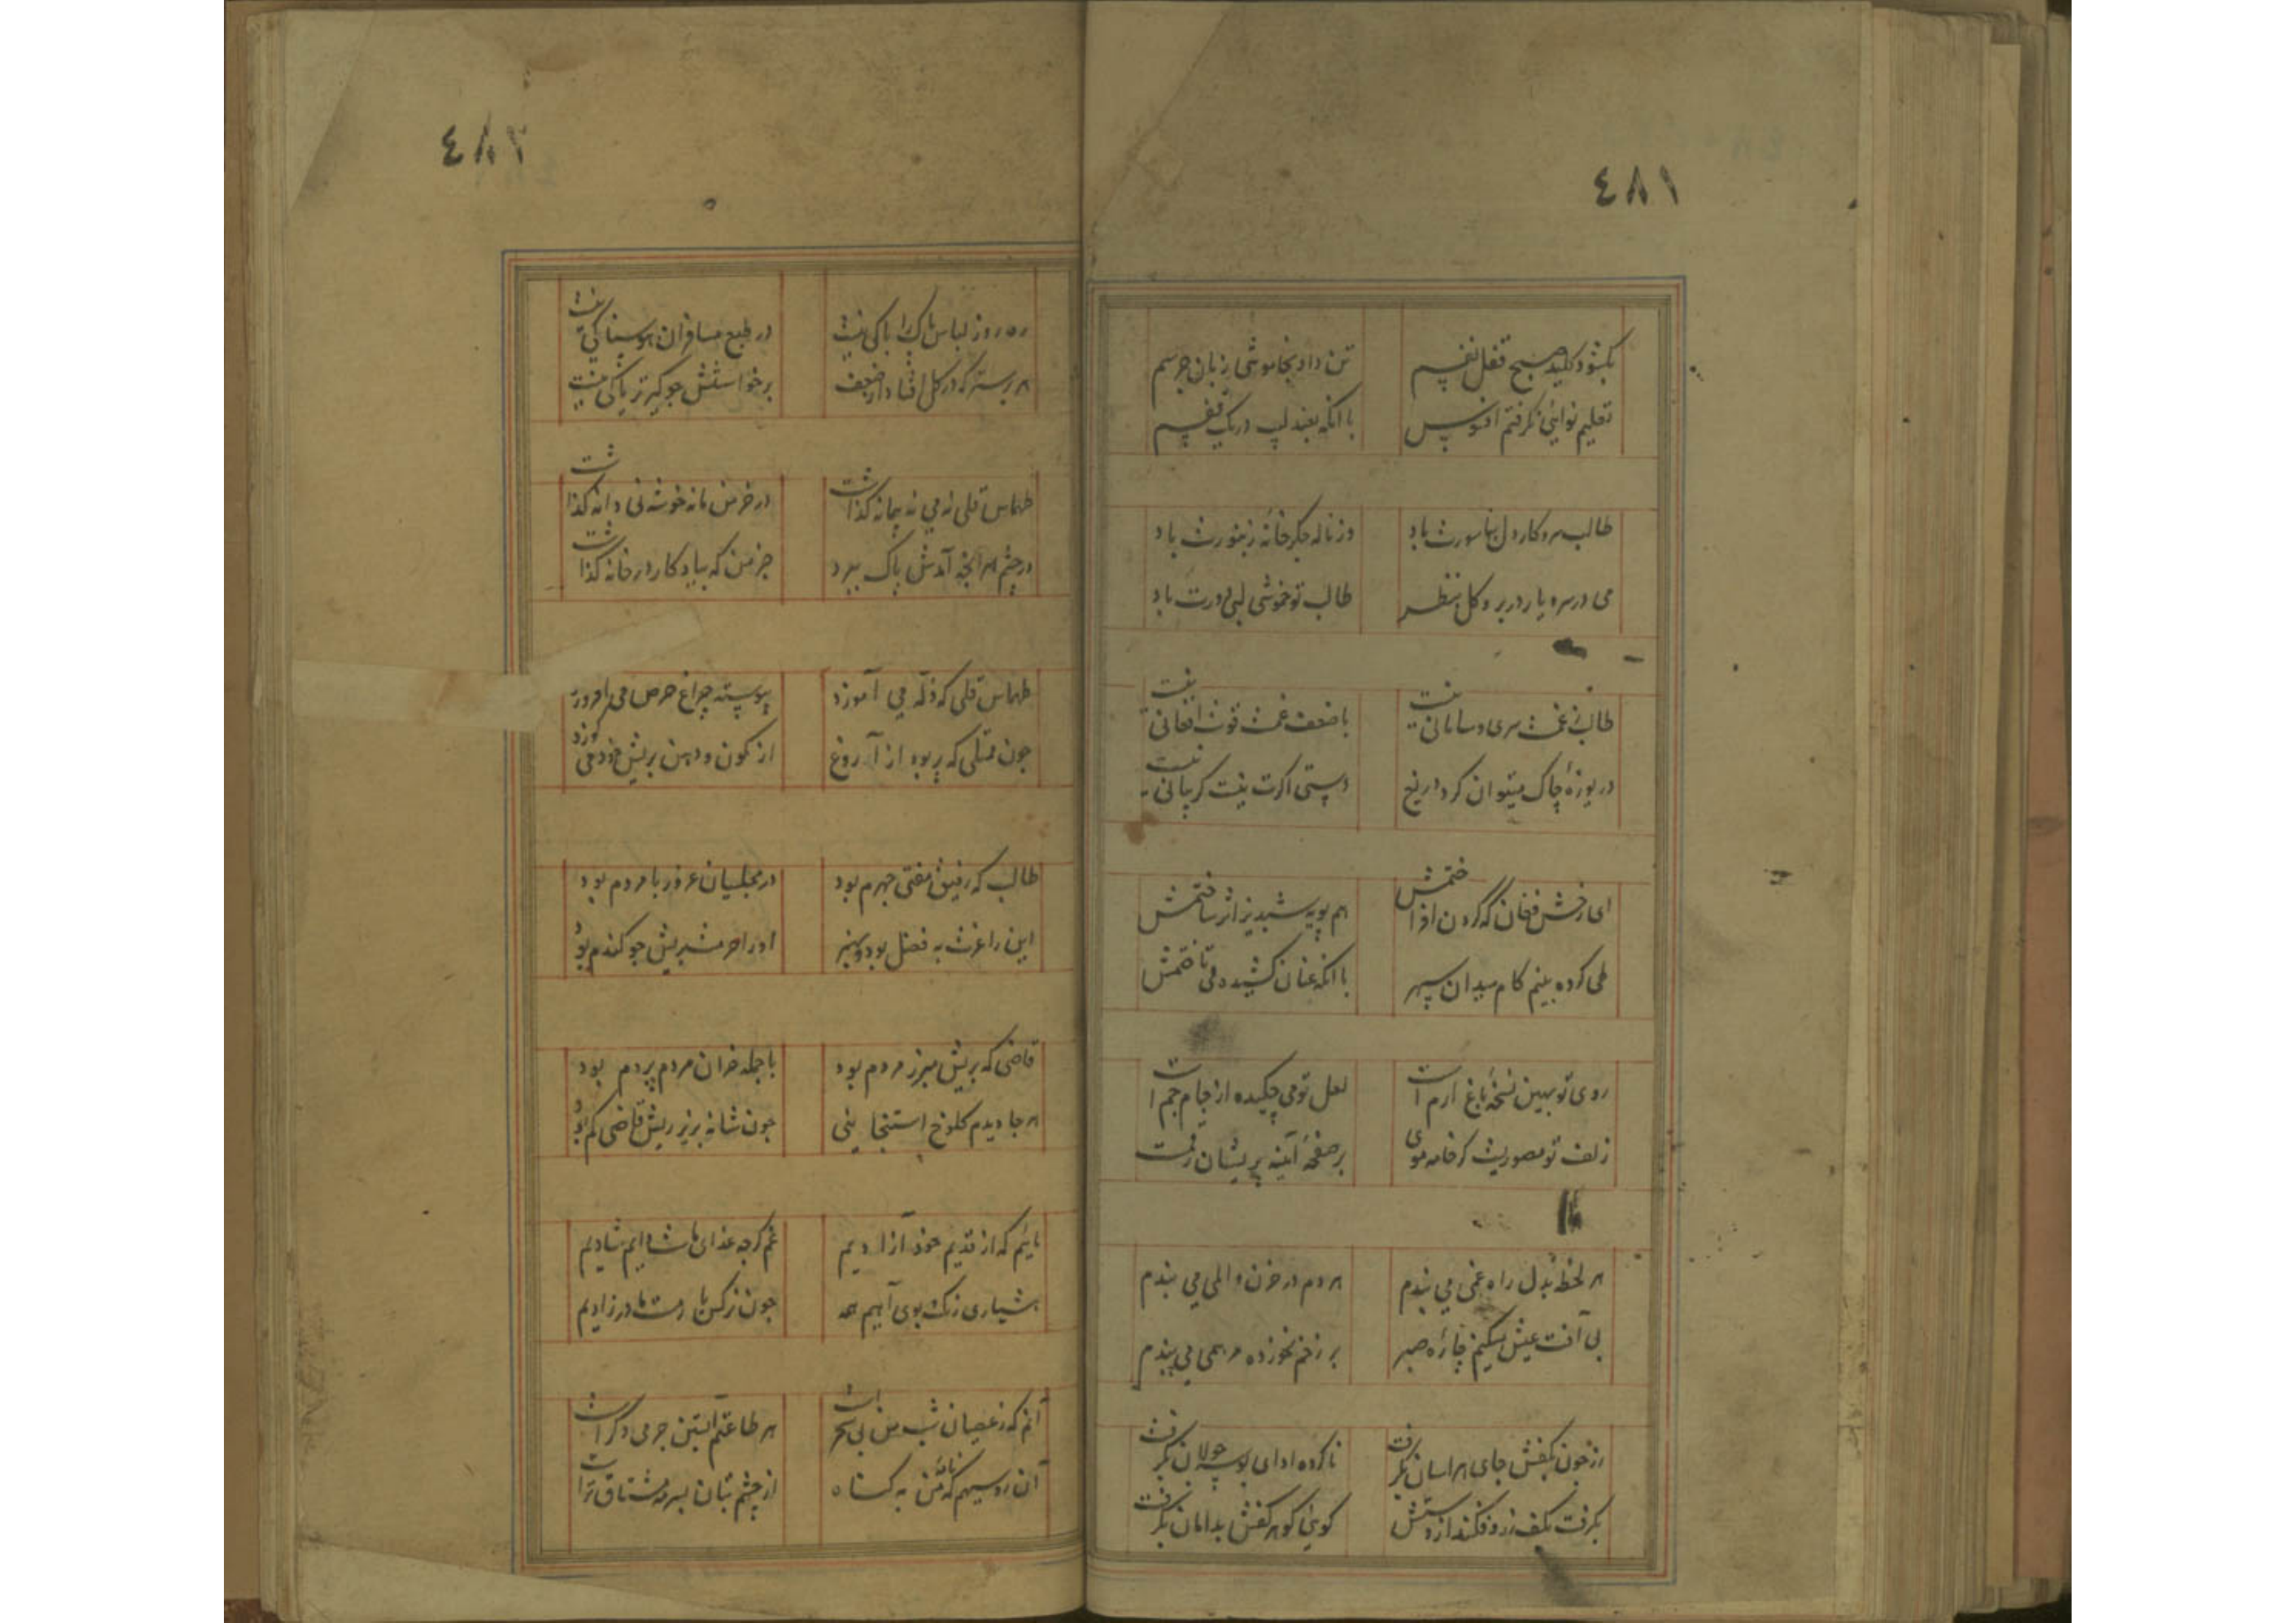 ٤٨١
بکشود کلید صبح قفل نفسم
تن داد بخاموشی زبان جرسم
تعلیم نوائی نگرفتم افسوس
با آنکه بعندلیب در یک قفسم
طالب سر و کار دل بناسورت باد
وز ناله جگر خانه زنبورت باد
می در سر و یار در بر و گل بنظر
طالب تو خموشی لبی دورت باد
طالب ز غمت سری و سامانی نیست
با ضعف غمت قوت افغانی نیست
دریوزهٔ چاک میتوان کرد دریغ
دستی اگرت نیست گریبانی نیست
ای رخش فغان که گردن افراختمش
هم پویه شبدیز اثر ساختمش
طی کرده ببینم کام میدان سپهر
با آنکه عنان کشیده می تاختمش
روی تو بهین نسخهٔ باغ ارم است
لعل تو می چکیده از جام جم است
زلف تو مصوریست کز خامه موی
بر صفحهٔ آینه پریشان رقمست
هر لحظه بدل راه غمی می بندم
هر دم در حزن و المی می بندم
بی آفت عیش میکنم چارهٔ صبر
بر زخم نخورده مرهمی می بندم
زر چون بکفش جای هراسان بگرفت
ناکرده ادای بوسه جولان بگرفت
بگرفت بکف زر و فکند از دستش
گوئی گوهر کفش بدامان بگرفت
٤٨٢
ره رو ز لباس پاک را باکی نیست
در طبع مسافران هوسناکی نیست
هر رسته که در گل افتاد از ضعف
برخواستنش چو گیر تریاکی نیست
طهماس قلی نه می نه پیمانه گذاشت
در خرمن ما نه خوشه نی دانه گذاشت
در چشم هر آنچه آمدش پاک ببرد
جز من که بیادگار در خانه گذاشت
طهماس قلی که ذکه می آموزد
پیوسته چراغ حرص می افروزد
چون ممتلی که پر بود از آروغ
از کون و دهن بریش خود می گوزد
طالب که رفیق مفتی جهرم بود
در مجلسیان غرور با مردم بود
این را عزت به فضل بود و هنر
او را حرمت بریش چو گندم بود
قاضی که بریش مبرز مردم بود
با جمله خران مردم پردم بود
هر جا دیدم کلوخ استنجا بینی
چون شانه بزیر ریش قاضی گم بود
مائیم که از قدیم خود آزادیم
غم گرچه غذای ماست دایم شادیم
هشیاری رنگ و بوی آبیم همه
چون نرگس ما مست ز مادر زادیم
آنم که ز عصیان شب من بی سحر است
هر طاعتم آبستن جرمی دگر است
آن روسیهم که نامهٔ من به گناه
از چشم بتان بسرمه مشتاق تر است